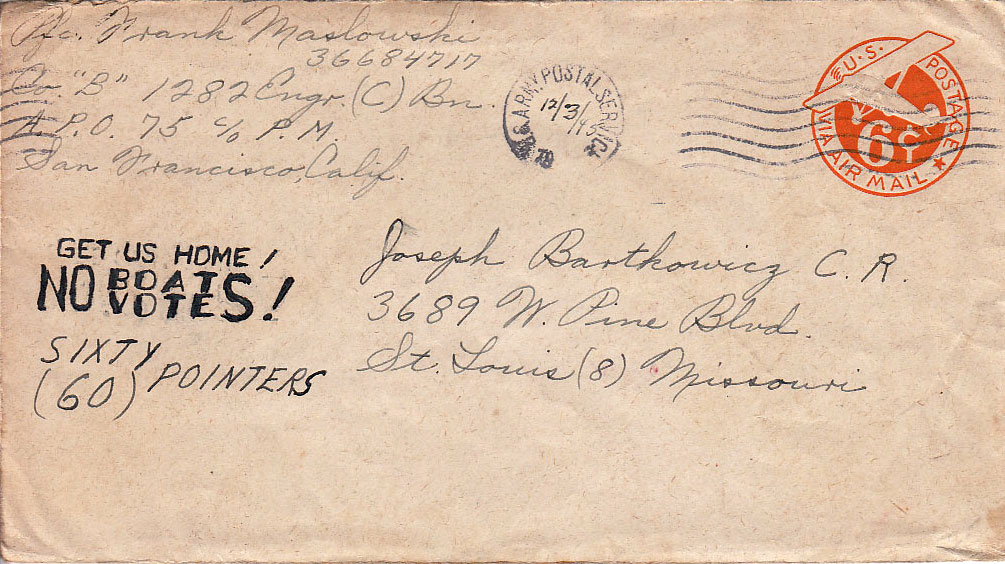 Pfc. Frank Maslowski
36684717
Co. "B" 1282 Engr. (C) Bn.
A.P.O. 75 c/o P.M.
San Francisco, Calif.
U.S. ARMY POSTAL SERVICE
12/3/
U.S. POSTAGE
6¢
VIA AIR MAIL
GET US HOME!
NO BOATS
VOTES!
SIXTY
(60) POINTERS
Joseph Bartkowicz C.R.
3689 W. Pine Blvd.
St. Louis (8) Missouri